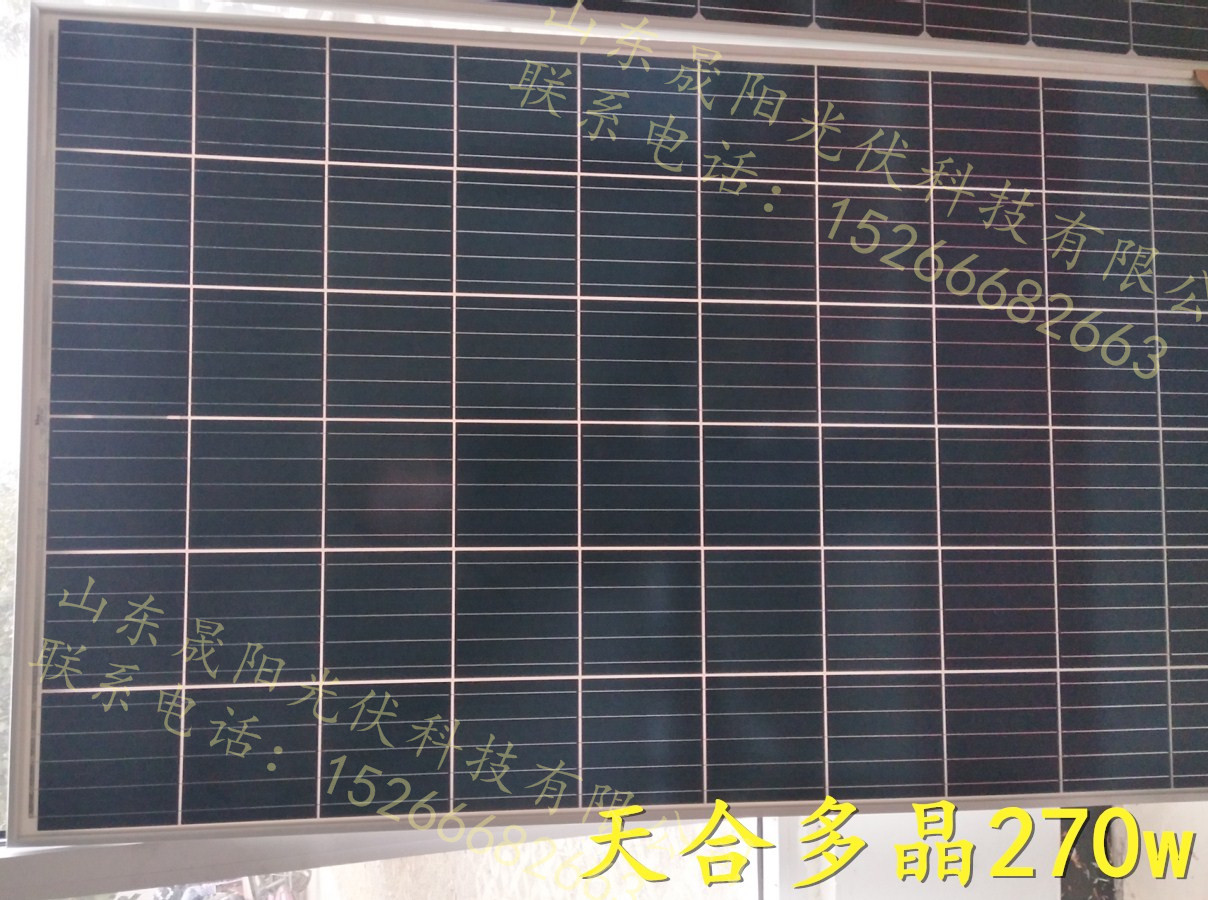 山东晟阳光伏科技有限公
联系电话：15266682663
山东晟阳光伏科技有限公
联系电话：15266682663
天合多晶270w